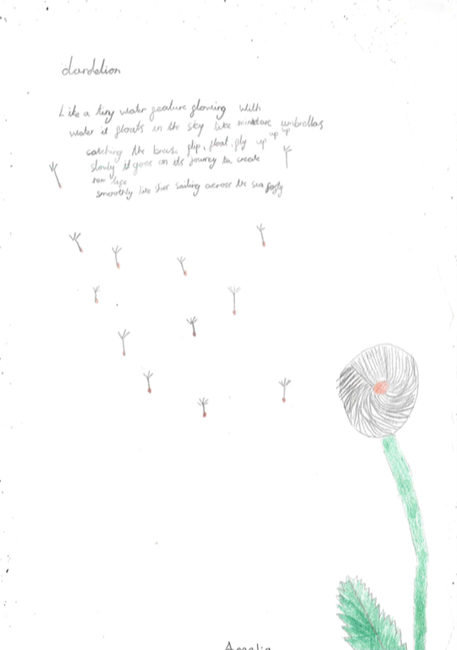 dandelion
Like a tiny water feature glowing with
water it floats in the sky like miniture umbrellas
catching the breeze flip, float, fly up up up
slowly it goes on its journey to create
new life
smoothly like ships sailing across the sea
Amelia